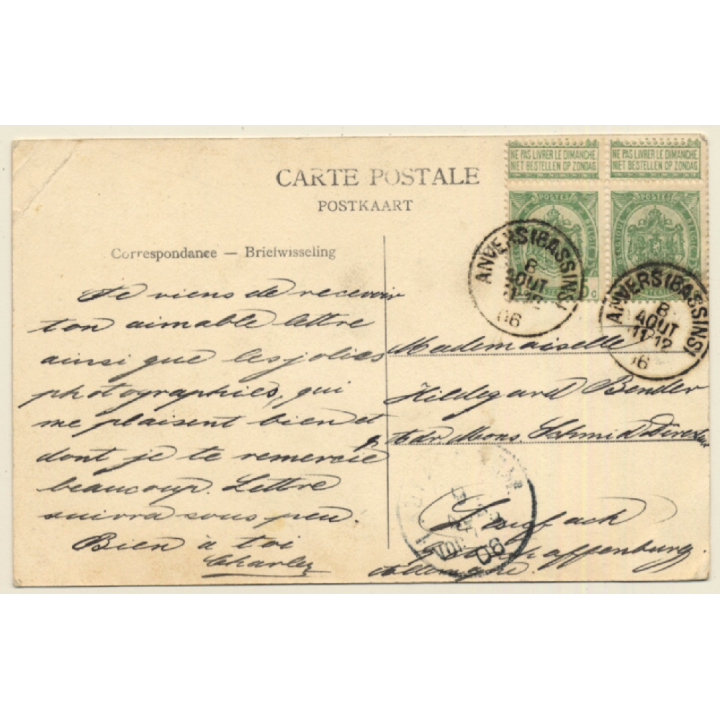 NE PAS LIVRER LE DIMANCHE
NIET BESTELLEN OP ZONDAG
NE PAS LIVRER LE DIMANCHE
NIET BESTELLEN OP ZONDAG
POSTES
POSTES
ANVERS (BASSINS)
8
AOUT
06
ANVERS (BASSINS)
8
AOUT
11-12
CARTE POSTALE
POSTKAART
Correspondance — Briefwisseling
Je viens de recevoir
ton aimable lettre
ainsi que les jolies
photographies, qui
me plaisent bien et
dont je te remercie
beaucoup. Lettre
suivra sous peu
Bien à toi
Charley
Mademoiselle
Hildegard Bender
Adr Mons. Schmid Directeur
06